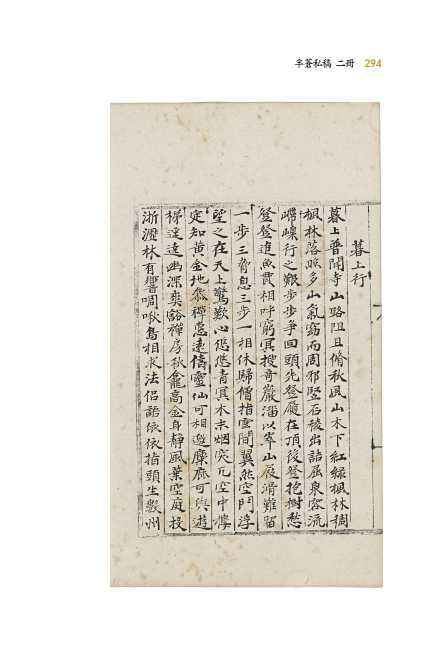 半蒼私稿 二冊 294
暮上行
暮上普聞寺山路阻且脩秋風山木下紅綠楓林稠
楓林落照多山氣窈而周邪竪石稜出詰屈泉容流
行之艱步步爭回頭先登履在頂後登抱樹愁
登登進魚貫相呼窮冥搜奇巖湢以峷山展滑難留
一步三脅息三步一相休歸僧指雲間翼然空門浮
望之在天上驚歎心悠悠青冥木末烟突兀空中樓
定知黃金地參禪愿遠儔靈仙可相邀麋鹿可與遊
梯逕遠幽深奕豁禪房秋龕高金身靜風葉空庭投
浙瀝林有響啁啾鳥相求法侶語依依指頭生數州